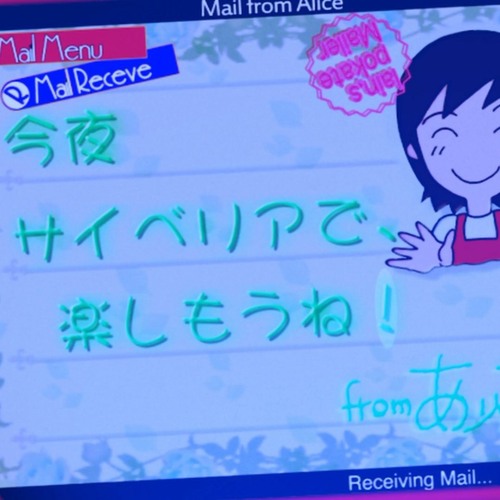 Mail from Alice
Mail Menu
Mail Receve
tain's
pokate
Mailer
今夜
サイベリアで、
楽しもうね!
from あり
Receiving Mail...